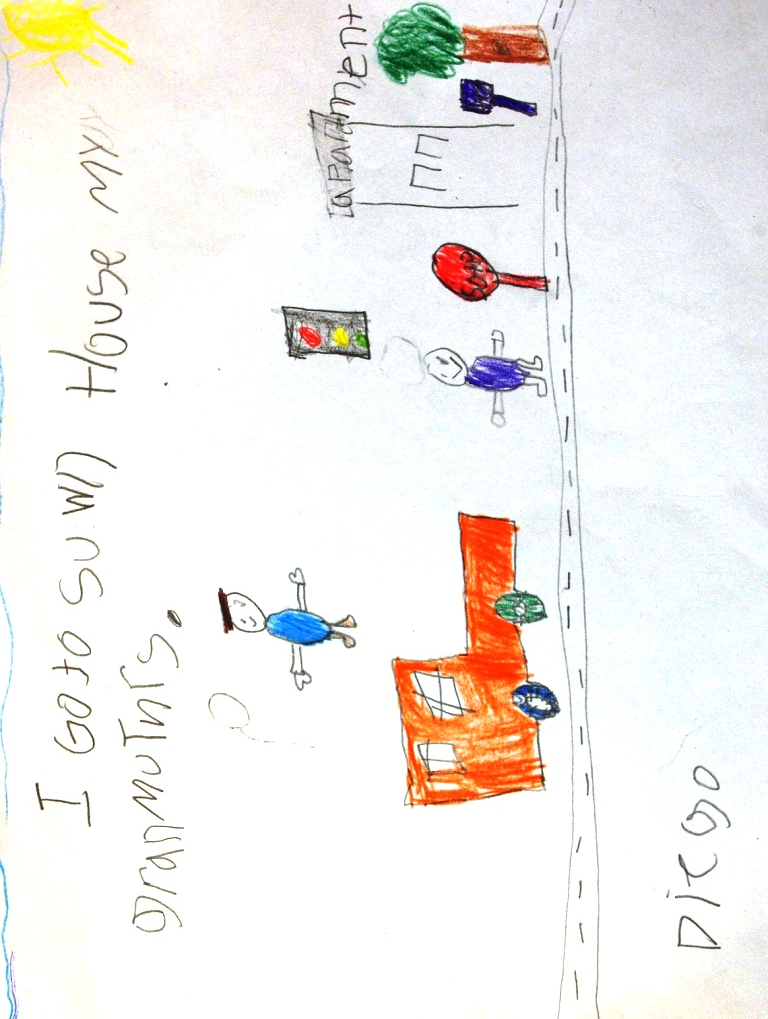 I Go to SU Wn House my
granmuThrs.
aPartment
Diego